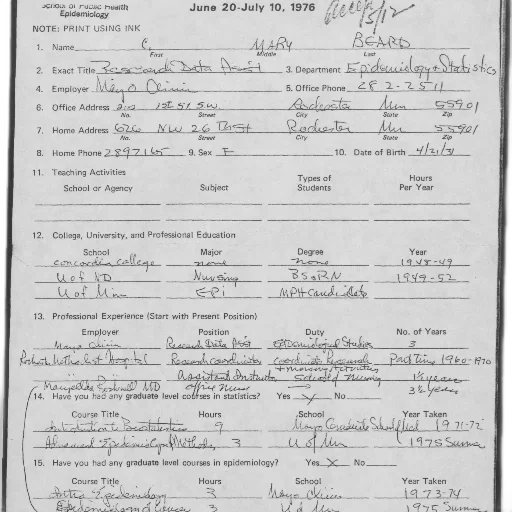 School of Public Health
Epidemiology
June 20-July 10, 1976
NOTE: PRINT USING INK
1. Name C. MARY BEARD
First Middle Last
2. Exact Title Research Data Asst 3. Department Epidemiology & Statistics
4. Employer Mayo Clinic 5. Office Phone 282-2511
6. Office Address 200 1st St S.W. Rochester Mn 55901
No. Street City State Zip
7. Home Address 626 NW 26th St Rochester Mn 55901
No. Street City State Zip
8. Home Phone 2897165 9. Sex F 10. Date of Birth 4/21/31
11. Teaching Activities
School or Agency Subject Types of Students Hours Per Year
12. College, University, and Professional Education
School Major Degree Year
Concordia College none none 1948-49
U of ND Nursing BS&RN 1949-52
U of Minn EPi MPH Candidate
13. Professional Experience (Start with Present Position)
Employer Position Duty No. of Years
Mayo Clinic Research Data Asst Epidemiological Studies 3
Rochester Methodist Hospital Research coordinator coordinate Research Part Time 1960-1970
Assistant Instructor School of Nursing 1½ years
MD office Nurse 3½ years
14. Have you had any graduate level courses in statistics? Yes X No
Course Title Hours School Year Taken
Introduction to Biostatistics 9 Mayo Graduate School Med 1971-72
Advanced Epidemiological Methods 3 U of Mn 1975 Summer
15. Have you had any graduate level courses in epidemiology? Yes X No
Course Title Hours School Year Taken
Epidemiology 3 Mayo Clinic 1973-74
Epidemiology of Cancer 3 U of Mn 1975 Summer